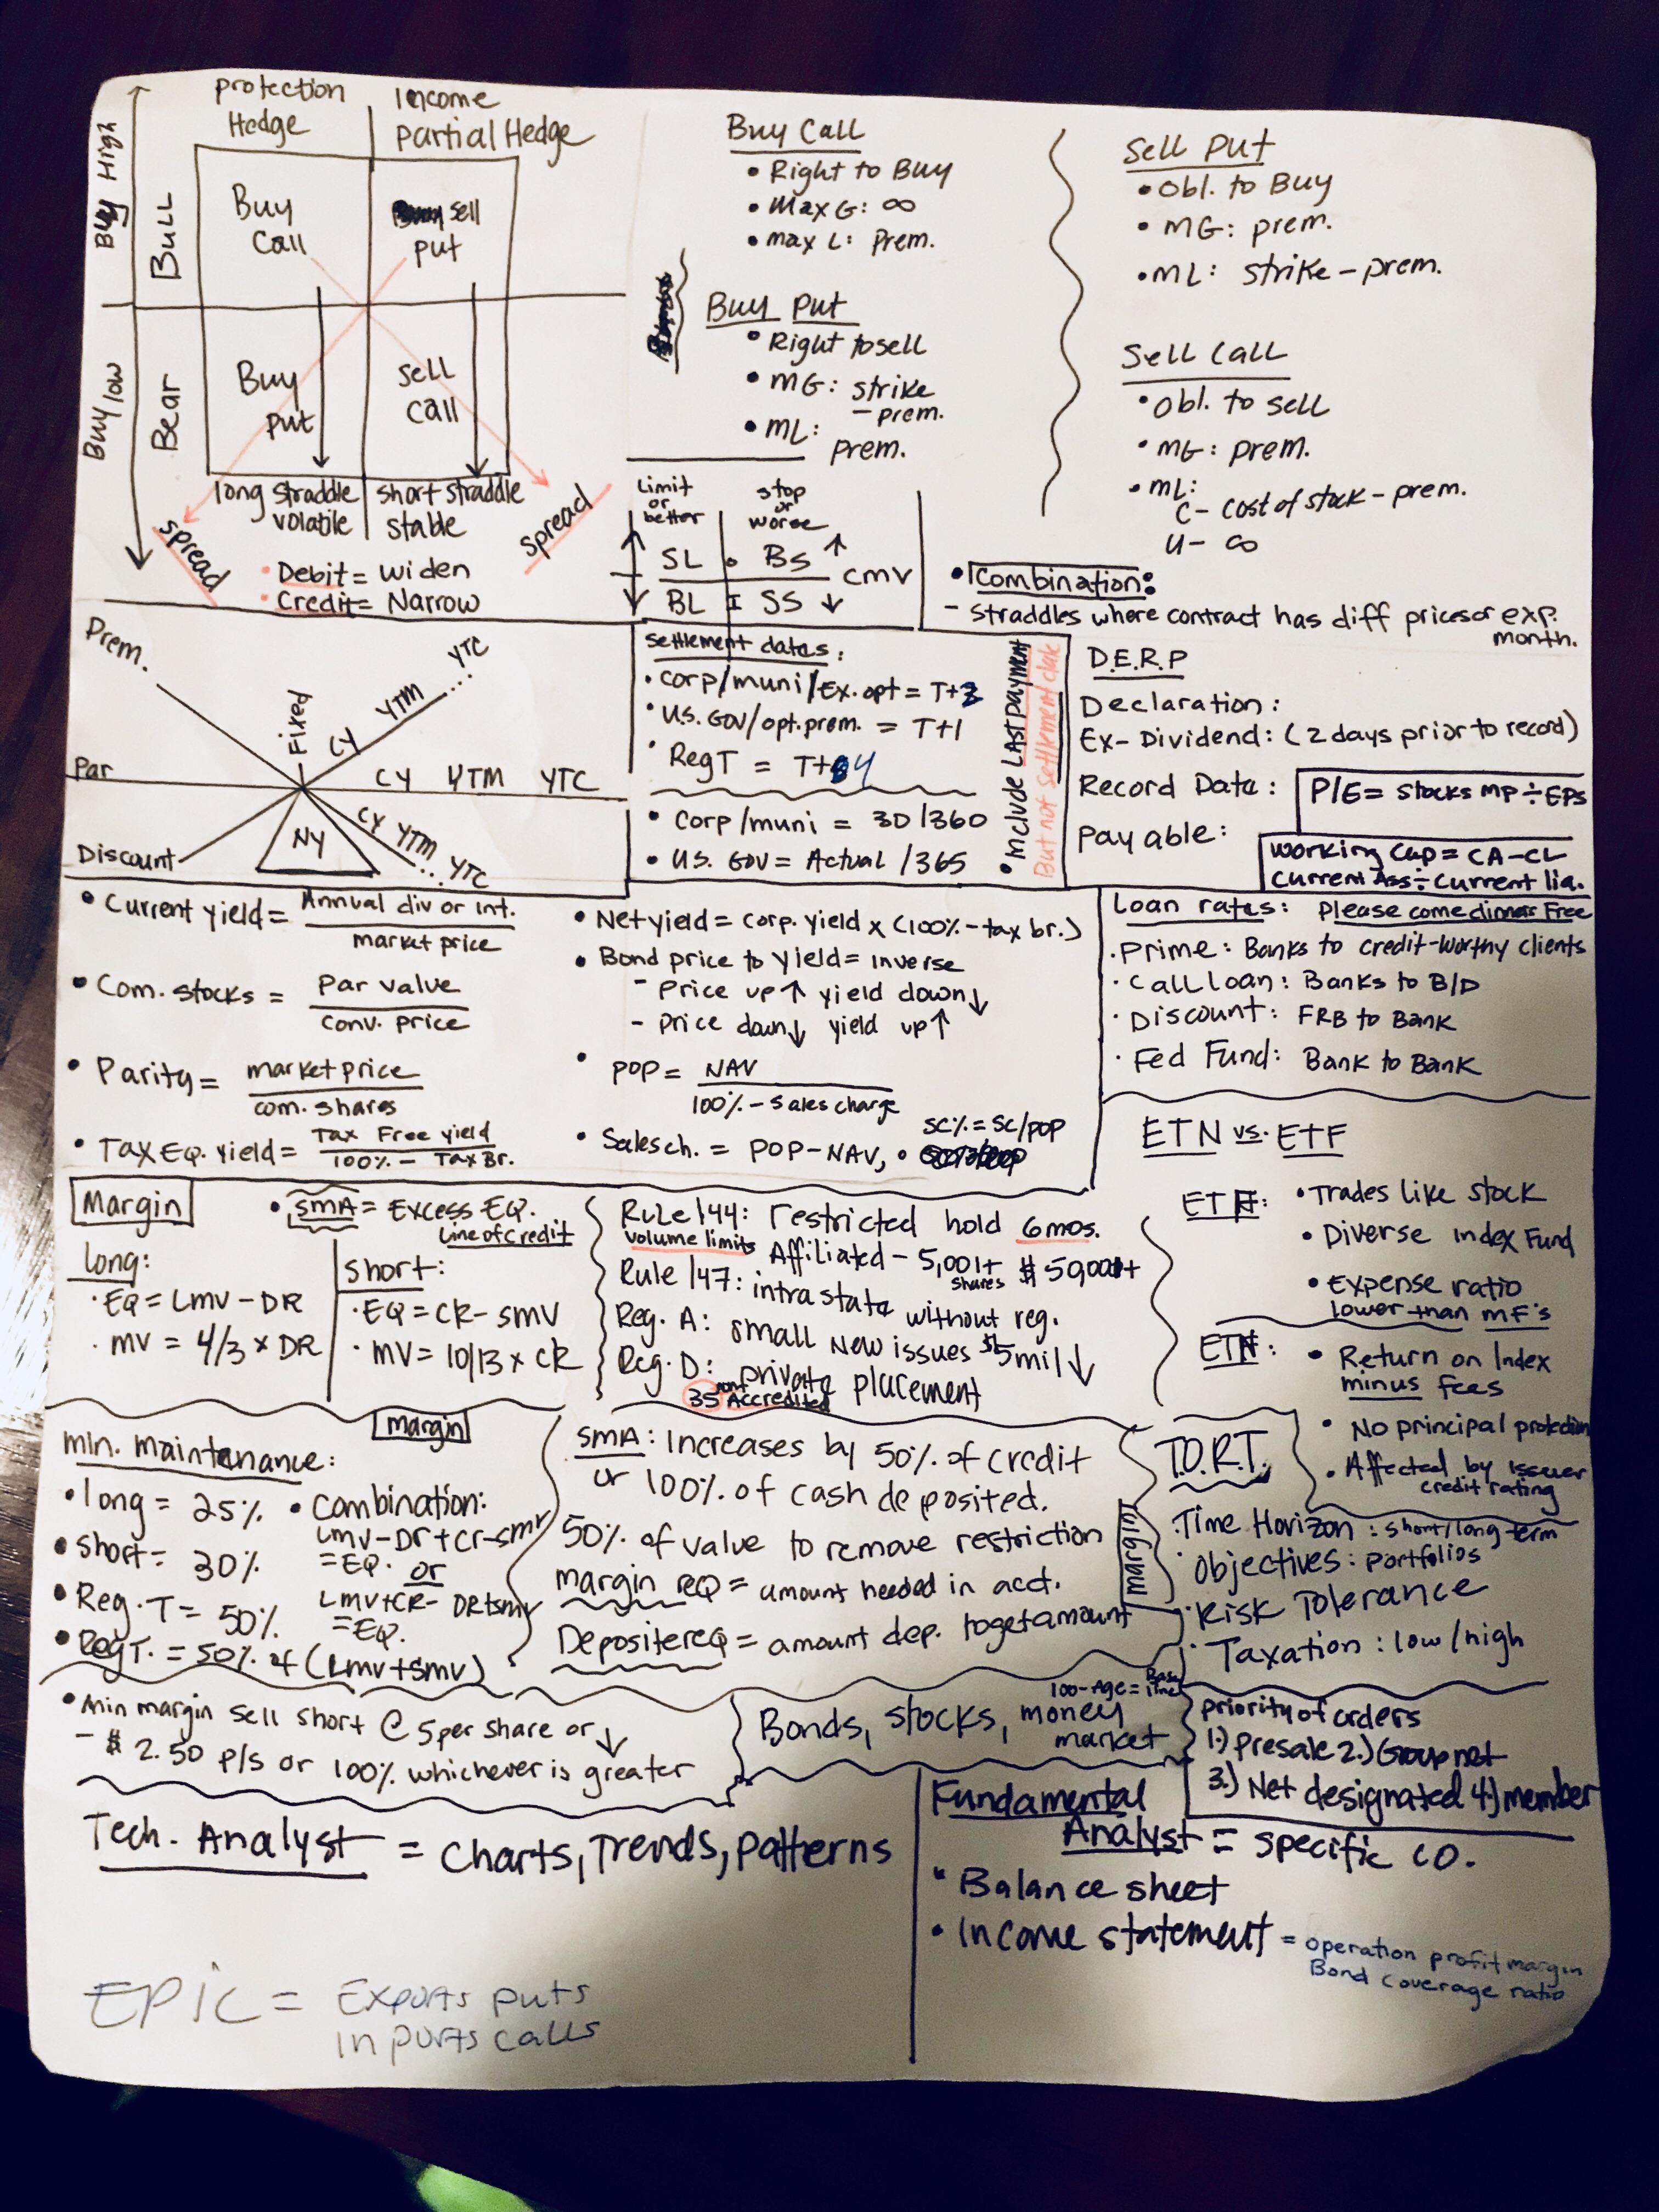 protection
Hedge
Income
Partial Hedge
Buy High
Bull
Buy
Call
sell
put
Buy low
Bear
Buy
put
sell
call
long straddle
volatile
short straddle
stable
spread
spread
• Debit = widen
• Credit = Narrow
Buy Call
• Right to Buy
• Max G: ∞
• max L: Prem.
Buy Put
• Right to sell
• MG: strike
- prem.
• ML:
prem.
Sell Put
• Obl. to Buy
• MG: prem.
• ML: strike - prem.
Sell Call
• Obl. to sell
• MG: prem.
• ML:
C - cost of stock - prem.
U - ∞
Limit
or
better
stop
or
worse
SL
BS
BL
SS
CMV
• Combination:
- straddles where contract has diff prices or exp.
month.
Prem.
Par
Discount
Fixed
CY
YTM
YTC
CY YTM YTC
CY YTM
YTC
NY
Settlement dates:
• Corp/muni/Ex. opt = T+2
• U.S. Gov/opt. prem. = T+1
• Reg T = T+4
• Corp/muni = 30/360
• U.S. Gov = Actual/365
• Include LAST payment
But not settlement date
D.E.R.P
Declaration:
Ex-Dividend: (2 days prior to record)
Record Date:
Payable:
P/E = Stocks MP ÷ EPS
Working Cap = CA - CL
Current Ass ÷ Current lia.
• Current yield = Annual div or int.
market price
• Com. stocks = Par value
conv. price
• Parity = market price
com. shares
• Tax EQ. yield = Tax Free yield
100% - Tax Br.
• Net yield = corp. yield x (100% - tax br.)
• Bond price to yield = inverse
- Price up ↑ yield down ↓
- Price down ↓ yield up ↑
• POP = NAV
100% - Sales charge
• Sales ch. = POP - NAV, •
SC% = SC/POP
Loan rates: Please come dinner Free
• Prime: Banks to credit-worthy clients
• Call loan: Banks to B/D
• Discount: FRB to Bank
• Fed Fund: Bank to Bank
ETN vs. ETF
ETF: • Trades like stock
• Diverse Index Fund
• Expense ratio
lower than MF's
ETN: • Return on Index
minus fees
• No principal protection
• Affected by Issuer
credit rating
Margin
• SMA = Excess EQ.
Line of Credit
long:
• EQ = LMV - DR
• MV = 4/3 x DR
short:
• EQ = CR - SMV
• MV = 10/13 x CR
Rule 144: restricted hold 6 mos.
volume limits
Affiliated - 5,001+ $50,000+
shares
Rule 147: intrastate without reg.
Reg. A: small New issues $5 mil ↓
Reg. D: private placement
35 non Accredited
Margin
min. maintenance:
• long = 25%
• short = 30%
• Reg. T = 50%
• Reg T. = 50% of (LMV + SMV)
• Combination:
LMV - DR + CR - SMV
= EQ. or
LMV + CR - DR + SMV
= EQ.
SMA: Increases by 50% of credit
or 100% of cash deposited.
50% of value to remove restriction
margin req = amount needed in acct.
Deposite req = amount dep. to get amount
margin
T.O.R.T.
• Time Horizon: short/long term
• Objectives: Portfolios
• Risk Tolerance
• Taxation: low/high
• Min margin sell short @ 5 per share or ↓
- $2.50 p/s or 100% whichever is greater
100 - Age = Base
line
Bonds, stocks, money
market
priority of orders
1.) presale 2.) Group net
3.) Net designated 4.) member
Tech. Analyst = Charts, Trends, patterns
Fundamental
Analyst = specific co.
• Balance sheet
• Income statement = operation profit margin
Bond coverage ratio
EPIC = Exports puts
Inports calls